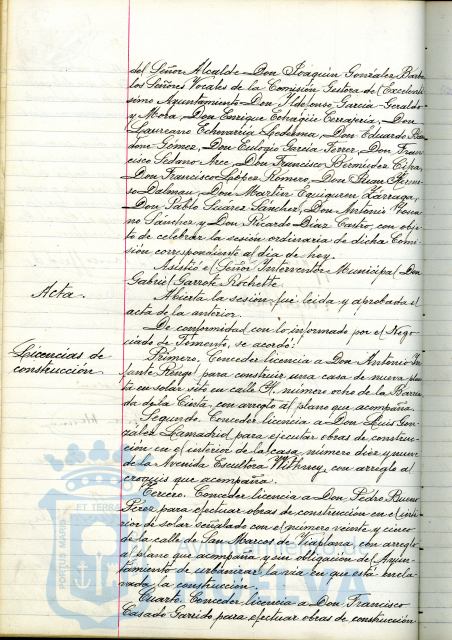 del Señor Alcalde Don Joaquín González Barba
los Señores Vocales de la Comisión Gestora del Excelentí
simo Ayuntamiento Don Ildefonso García Geraldo
y Mora, Don Enrique Echagüe Don
Laureano Echevarría Ledesma, Don Eduardo
Gómez, Don Eulogio García Ferrer, Don Fran
cisco Sedano Arce, Don Francisco Bermúdez
Don Francisco López Romero, Don Juan
Dalmau, Don Martín Eguiguren Zárraga,
Don Pablo Suárez Sánchez, Don Antonio
no Sánchez y Don Ricardo Díaz Castro, con obje
to de celebrar la sesión ordinaria de dicha Comi
sión correspondiente al día de hoy.
Asistió el Señor Interventor Municipal Don
Gabriel Garrote Rochette
Acta.
Abierta la sesión, fué leída y aprobada el
acta de la anterior.
De conformidad con lo informado por el Nego
ciado de Fomento, se acordó:
Licencias de
construcción.
Primero. Conceder licencia a Don Antonio In
fante para construir una casa de nueva plan
ta en solar sito en calle A. número ocho de la Barria
da de la Cinta, con arreglo al plano que acompaña.
Segundo. Conceder licencia a Don Luis Gon
zález Lamadrid para ejecutar obras de construc
ción en el interior de la casa número diez y nueve
de la Avenida Escultora Withney, con arreglo al
croquis que acompaña.
Tercero. Conceder licencia a Don Pedro Bueno
Pérez para efectuar obras de construcción en el inte
rior de solar señalado con el número veinte y cinco
de la calle de San Marcos de Viaplana con arreglo
al plano que acompaña y sin obligación del Ayun
tamiento de urbanizar la vía en que está encla
vada la construcción.
Cuarto. Conceder licencia a Don Francisco
Casado Garrido para efectuar obras de construcción
PORTUS MARIS
ET TERRAE